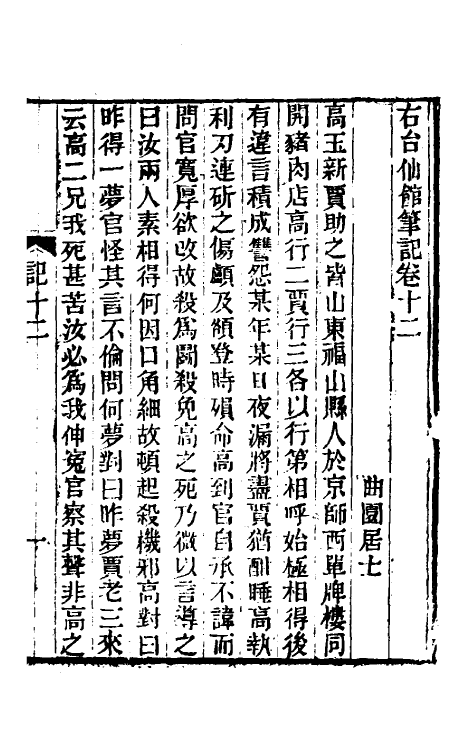 右台仙館筆記卷十二
曲園居士
高玉新賈助之皆山東福山縣人於京師西單牌樓同
開豬肉店高行二賈行三各以行第相呼始極相得後
有違言積成讐怨某年某日夜漏將盡賈猶酣睡高執
利刃連斫之傷顱及額登時殞命高到官自承不諱而
問官寬厚欲改故殺爲鬭殺免高之死乃微以言導之
曰汝兩人素相得何因口角細故頓起殺機邪高對曰
昨得一夢官怪其言不倫問何夢對曰昨夢賈老三來
云高二兄我死甚苦汝必爲我伸寃官察其聲非高之
記十二
一